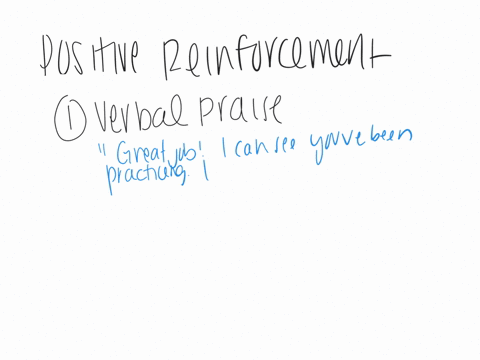 Positive Reinforcement
① Verbal praise
" Great job! I can see you've been
practicing. |